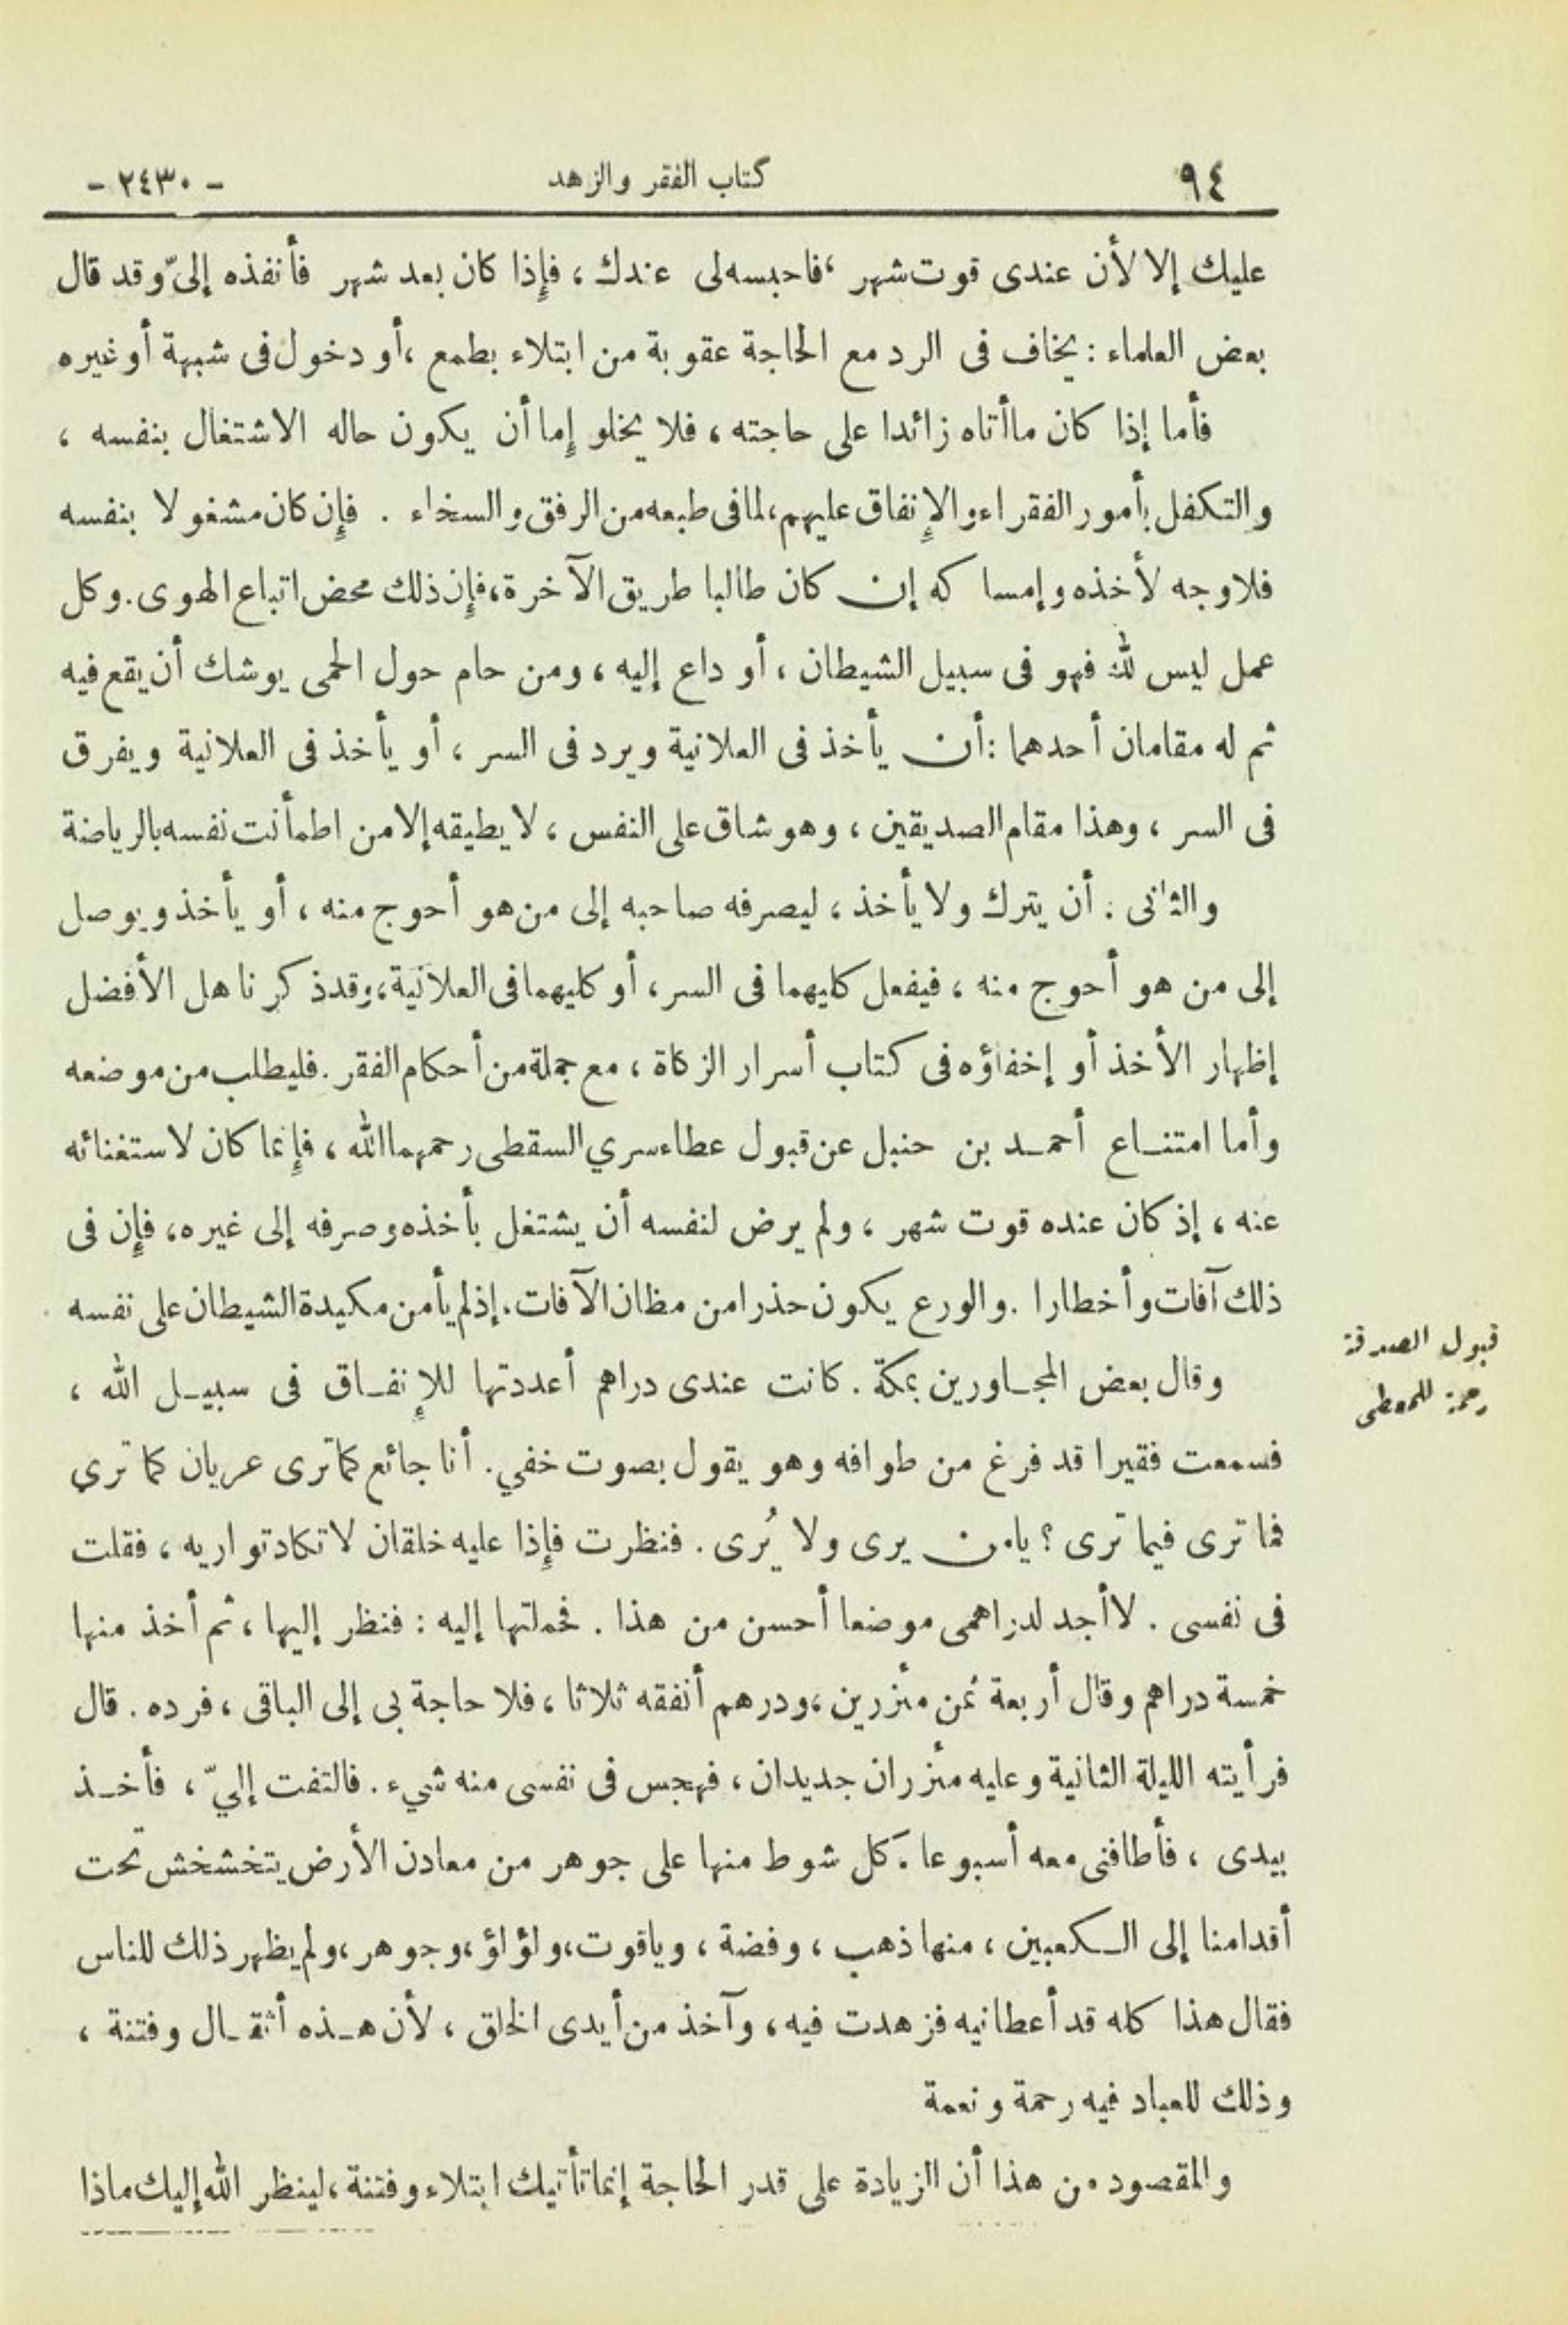 ٩٤ كتاب الفقر والزهد - ٢٤٣٠ -
عليك إلا لأن عندى قوت شهر ، فاحبسه لى عندك ، فإذا كان بعد شهر فأنفذه إلىّ وقد قال
بعض العلماء : يخاف فى الرد مع الحاجة عقوبة من ابتلاء بطمع ، أو دخول فى شبهة أو غيره
فأما إذا كان ماأتاه زائدا على حاجته ، فلا يخلو إما أن يكون حاله الاشتغال بنفسه ،
والتكفل بأمور الفقراء والإنفاق عليهم ، لما فى طبعه من الرفق والسخاء . فإن كان مشغولا بنفسه
فلا وجه لأخذه وإمساكه إن كان طالبا طريق الآخرة ، فإن ذلك محض اتباع الهوى . وكل
عمل ليس لله فهو فى سبيل الشيطان ، أو داع إليه ، ومن حام حول الحمى يوشك أن يقع فيه
ثم له مقامان أحدهما : أن يأخذ فى العلانية ويرد فى السر ، أو يأخذ فى العلانية ويفرق
فى السر ، وهذا مقام الصديقين ، وهو شاق على النفس ، لا يطيقه إلا من اطمأنت نفسه بالرياضة
والثانى : أن يترك ولا يأخذ ، ليصرفه صاحبه إلى من هو أحوج منه ، أو يأخذ ويوصل
إلى من هو أحوج منه ، فيفعل كليهما فى السر ، أو كليهما فى العلانية ، وقد ذكرنا هل الأفضل
إظهار الأخذ أو إخفاؤه فى كتاب أسرار الزكاة ، مع جملة من أحكام الفقر . فليطلب من موضعه
وأما امتناع أحمد بن حنبل عن قبول عطاء سري السقطى رحمهما الله ، فإنما كان لاستغنائه
عنه ، إذ كان عنده قوت شهر ، ولم يرض لنفسه أن يشتغل بأخذه وصرفه إلى غيره ، فإن فى
ذلك آفات وأخطارا . والورع يكون حذرا من مظان الآفات . إذ لم يأمن مكيدة الشيطان على نفسه
قبول الصدقة
رحمة للمعطى
وقال بعض المجاورين بمكة . كانت عندى دراهم أعددتها للإنفاق فى سبيل الله ،
فسمعت فقيرا قد فرغ من طوافه وهو يقول بصوت خفي . أنا جائع كما ترى عريان كما تري
فما ترى فيما ترى ؟ يامن يرى ولا يُرى . فنظرت فإذا عليه خلقان لا تكاد تواريه ، فقلت
فى نفسى . لا أجد لدراهمى موضعا أحسن من هذا . فحملتها إليه : فنظر إليها ، ثم أخذ منها
خمسة دراهم وقال أربعة ثمن مئزرين ، ودرهم أنفقه ثلاثا ، فلا حاجة بى إلى الباقى ، فرده . قال
فرأيته الليلة الثانية وعليه مئزران جديدان ، فهجس فى نفسى منه شيء . فالتفت إليّ ، فأخذ
بيدى ، فأطافنى معه أسبوعا . كل شوط منها على جوهر من معادن الأرض يتخشخش تحت
أقدامنا إلى الكعبين ، منها ذهب ، وفضة ، وياقوت ، ولؤلؤ ، وجوهر ، ولم يظهر ذلك للناس
فقال هذا كله قد أعطانيه فزهدت فيه ، وآخذ من أيدى الخلق ، لأن هذه أثقال وفتنة ،
وذلك للعباد فيه رحمة ونعمة
والمقصود من هذا أن الزيادة على قدر الحاجة إنما تأتيك ابتلاء وفتنة ، لينظر الله إليك ماذا